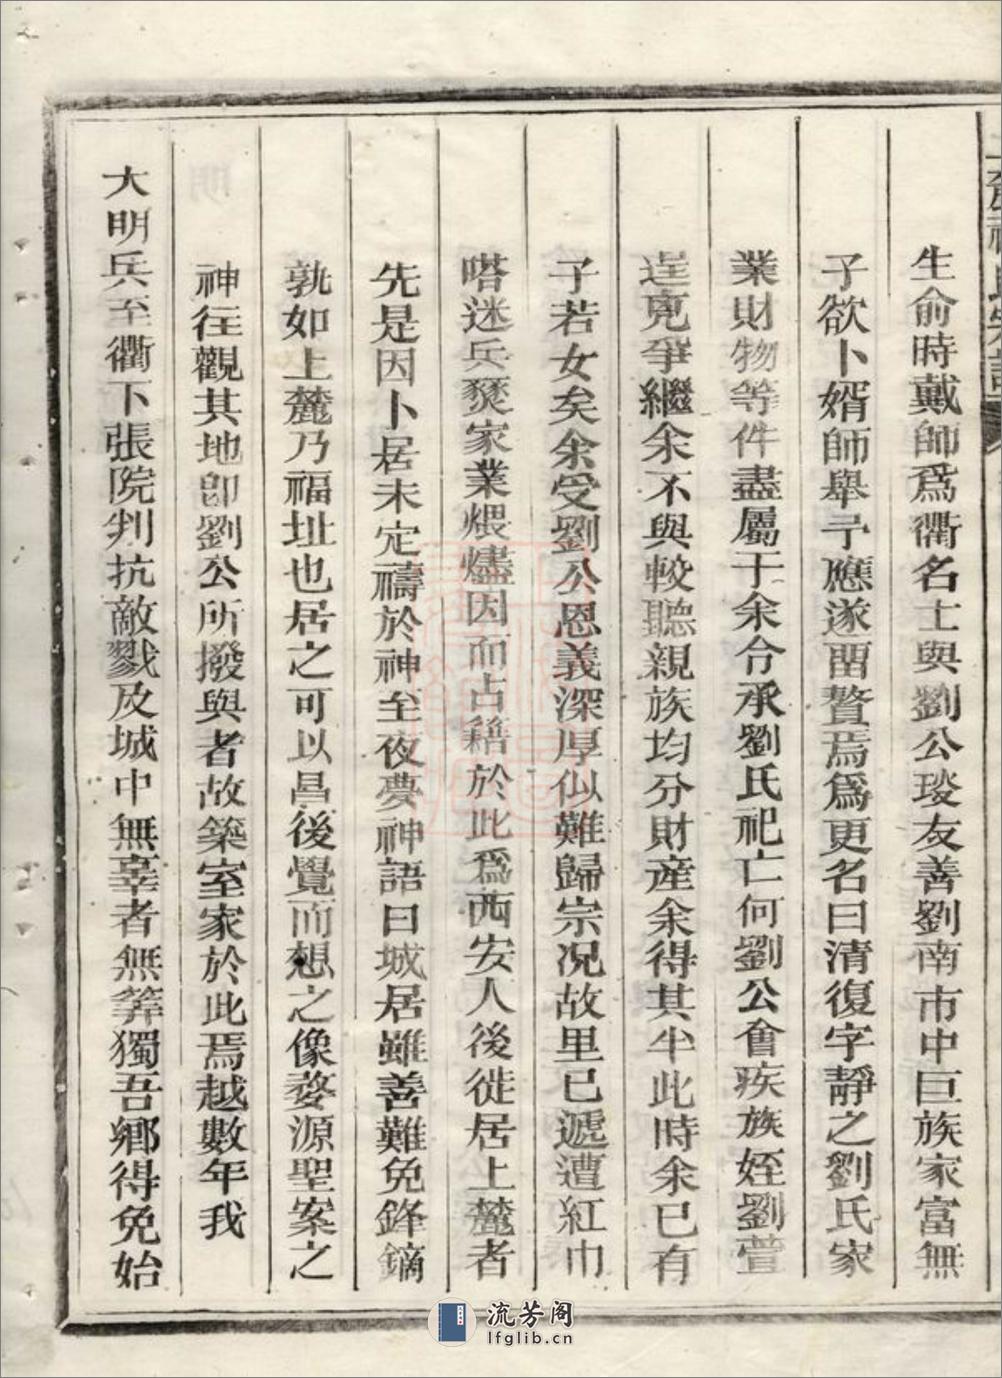 生俞時戴師爲衢名士與劉公琰友善劉南市中巨族家富無
子欲卜婿師舉予應遂畱贅焉爲更名曰清復字靜之劉氏家
業財物等件盡屬于余合承劉氏祀亡何劉公會疾族姪劉萱
逞克爭繼余不與較聽親族均分財產余得其半此時余已有
子若女矣余受劉公恩義深厚似難歸宗况故里已遞遭紅巾
嗒迷兵燹家業煨燼因而占籍於此爲西安人後徙居上麓者
先是因卜居未定禱於神至夜夢神語曰城居雖善難免鋒鏑
孰如上麓乃福址也居之可以昌後覺而想之像婺源聖案之
神徃觀其地卽劉公所撥與者故築室家於此焉越數年我
大明兵至衢下張院判抗敵戮及城中無辜者無筭獨吾鄉得免始
流芳阁
lfglib.cn